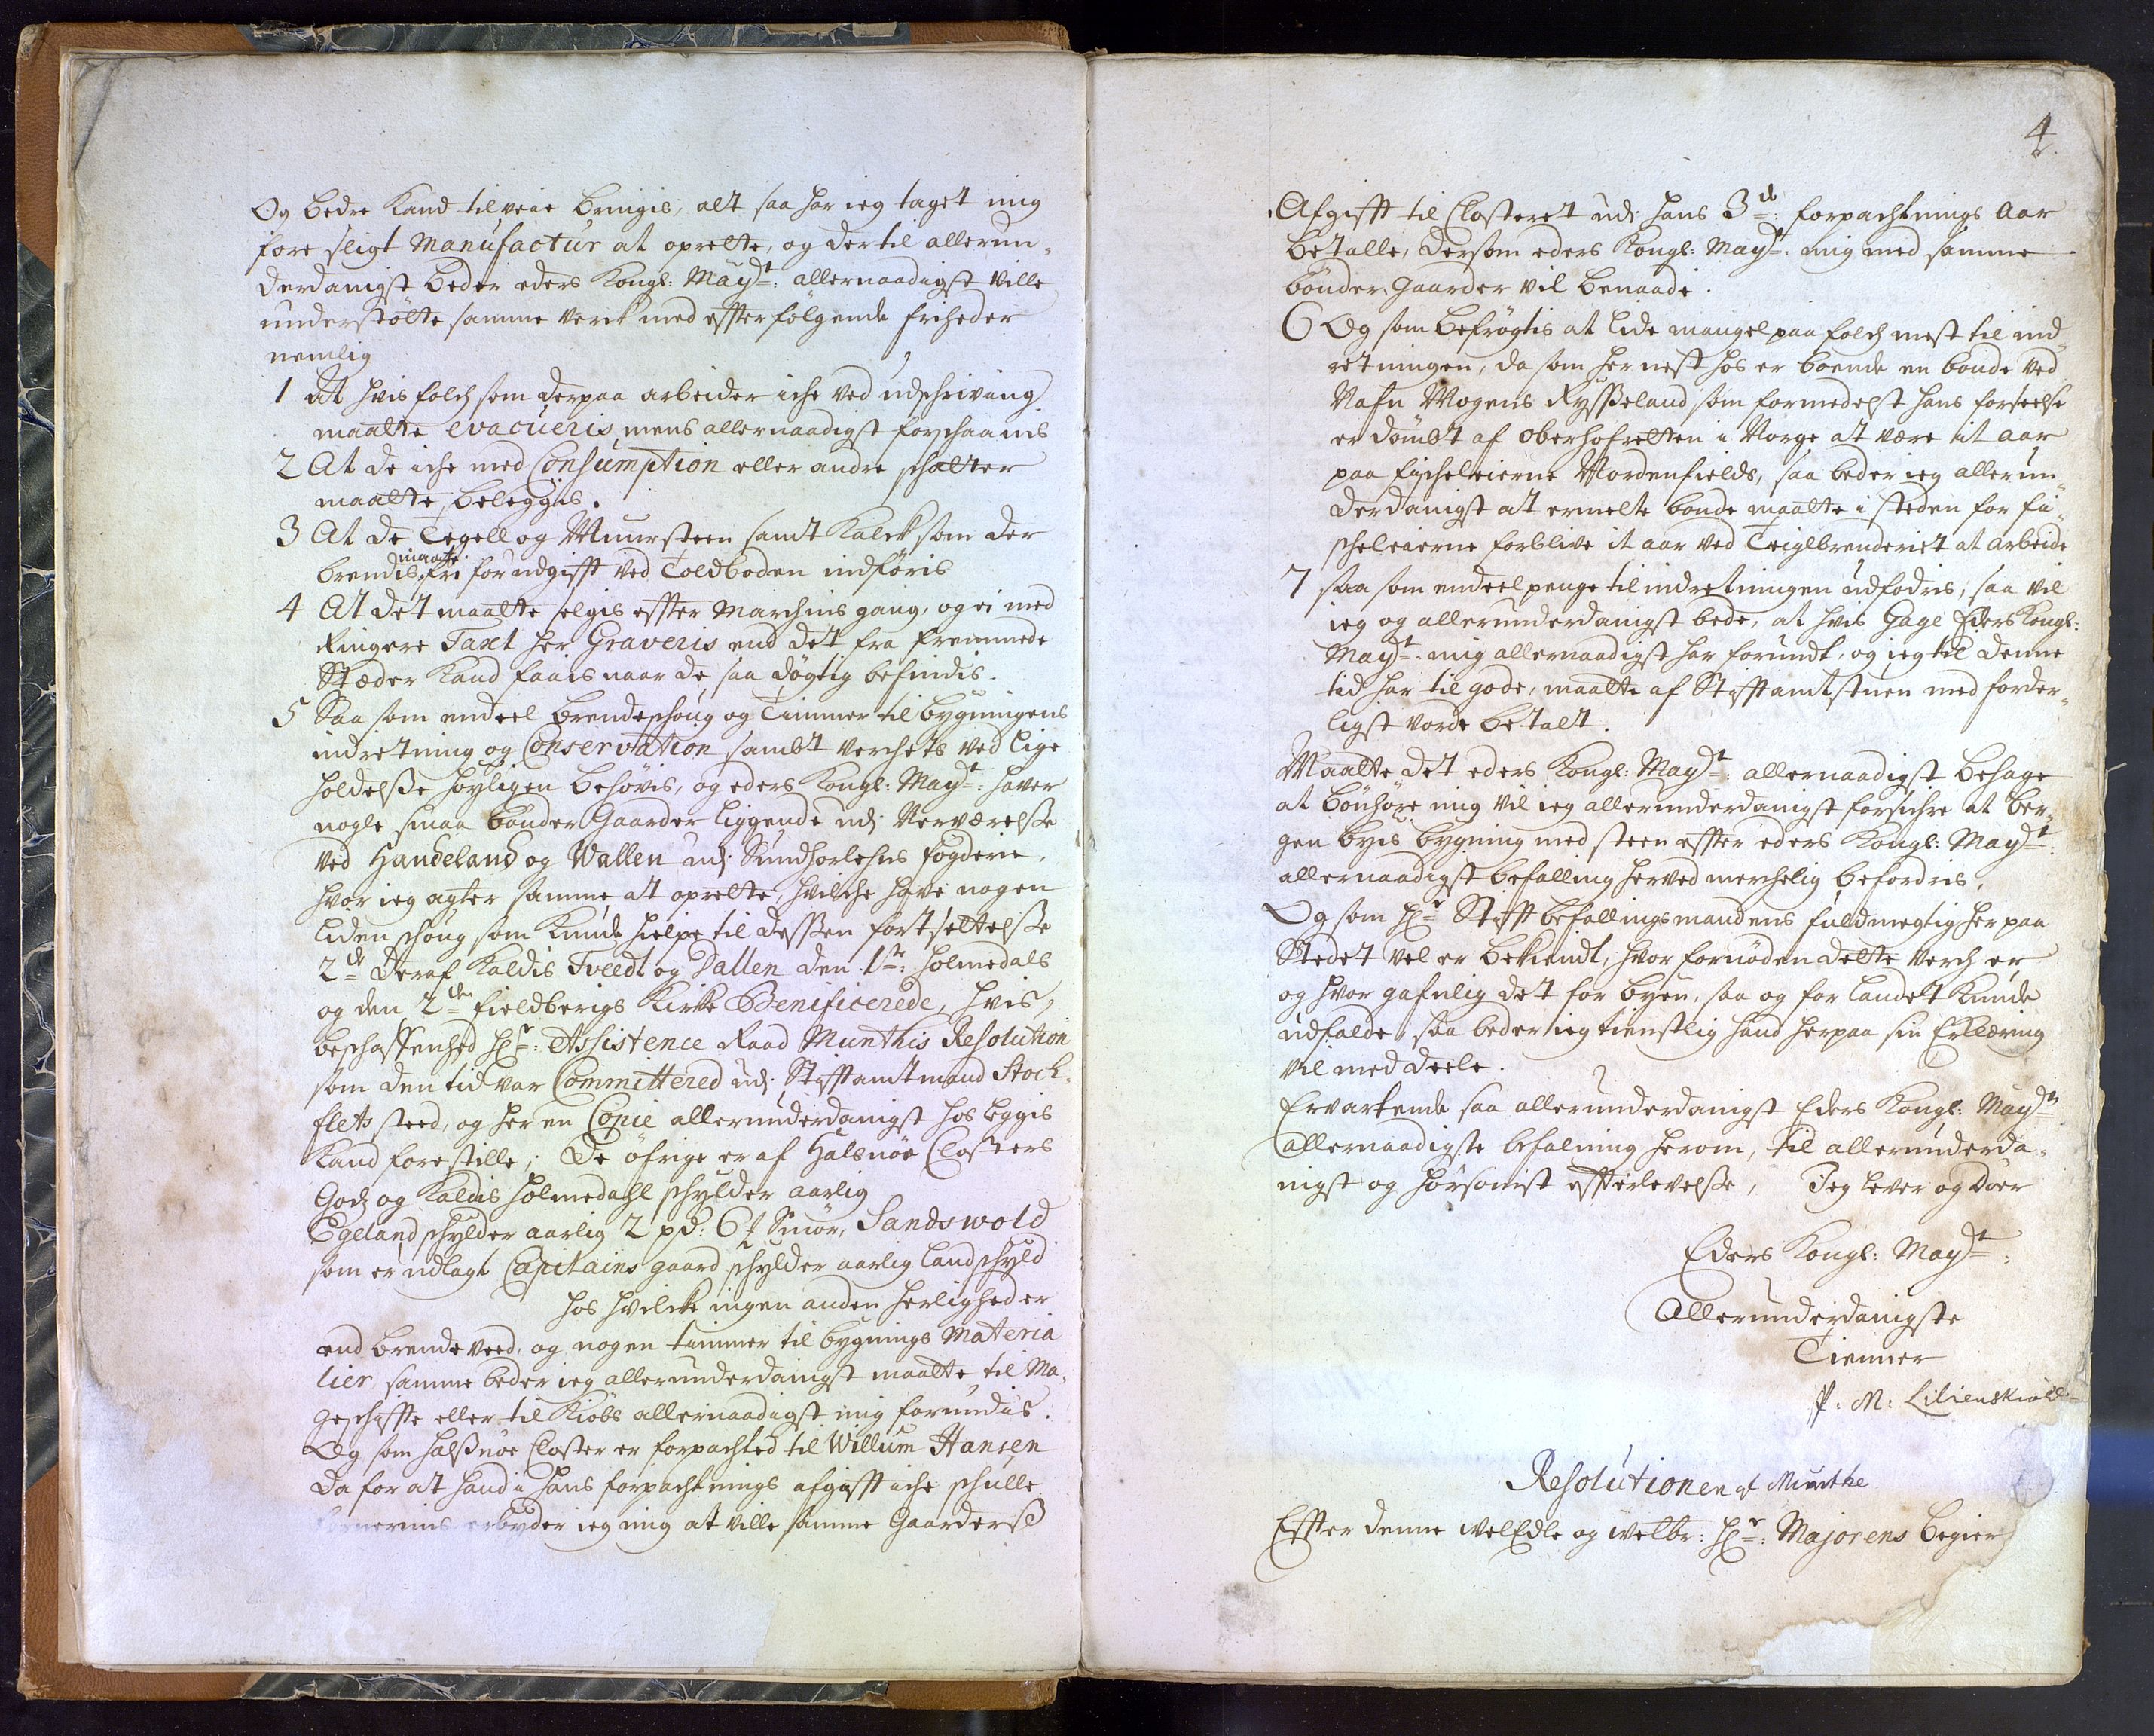 Og bedre Kand tilveie bringis, alt saa har ieg taget mig
fore sligt Manufactur at oprette, og dertil allerun-
derdanigst beder eders Kongl: Mayst: allernaadigst ville
understötte samme verck med effterfölgende friheder
nemlig
1 At hvis folch som derpaa arbeider iche ved udschrivning
maatte evacueris, mens allernaadigst forschaanis
2 At de iche med Consumption eller andre schatter
maatte beleggis.
3 At de Tegell og Muursteen samt Kalck som der
brendis maatte fri for udgifft ved Toldboden indföris
4 At det maatte selgis effter Marchens gang, og ei med
Ringere Taxt her Graveris end det fra fremmede
Stæder Kand faais naar de saa dögtig befindis.
5 Saa som endeel brendeschoug og Timmer til bygningens
indretning og Conservation sambt verchets ved lige
holdelsse höyligen behövis, og eders Kongl: Mayst: haver
nogle smaa bönder Gaarder liggende udj Nerværelsse
ved Handeland og Wallen udj Sundhorlehns fogderie,
hvor ieg agter samme at oprette, hvilche have nogen
liden schoug som Kunde hielpe til dessen fortsettelsse
2de deraf Kaldis Tveedt og Dallen den 1ste: Holmedals
og den 2den fieldberigs Kirke Benificerede, hvis
beschaffenhed Hr: Assistence Raad Munthis Resolution
som den tid var Committered udj Stifftamtmand Stock-
flets sted, og her en Copie allerunderdanigst hos leggis
Kand forestille; De öfrige er af Halsnöe Closters
Gods og Kaldis Holmedahl schylder aarlig
Egeland schylder aarlig 2 pd: 6 Smör, Sandswold
som er udlagt Capitains gaard schylder aarlig landschyld
hos hvilcke ingen anden herligheder
end brendeveed, og nogen timmer til bygnings Materia
lier, samme beder ieg allerunderdanigst maatte til Ma-
geschiffte eller til Kiöbs allernaadigst mig forundis.
Og som Halssnöe Closter er forpachted til Willum Hansen
da for at hand i hans forpachtnings afgifft iche schulle
erbyder ieg mig at ville samme Gaarders
4.
Afgifft til Closteret udi hans 3de: forpachtnings Aar
betalle, dersom eders Kongl: Mayst: mig med samme
bönder Gaarder vil benaade.
6 Og som befrögtis at lide mangel paa folch mest til ind-
retningen, da som her nest hos er boende en bonde ved
Nafn Mogens Rysseland som formedelst hans forseelse
er dömbt af Oberhofretten i Norge at være it aar
paa fischeleierne Nordenfields, saa beder ieg allerun-
derdanigst at ermelte bonde maatte i steden for fi-
scheleierne forblive it aar ved Teiglbrenderiet at arbeide
7 saa som endeel penge til indretningen udfodris, saa vil
ieg og allerunderdanigst bede, at hvis Gage Eders Kongl:
Mayst: mig allernaadigst har forundt, og ieg til denne
tid har til gode, maatte af Stifftamtstuen med forder-
ligst vorde betalt.
Maatte det eders Kongl: Mayst: allernaadigst behage
at bönhöre mig vil ieg allerunderdanigst forsichre at Ber-
gen byis bygning med steen effter eders Kongl: Mayst:
allernaadigst befalling herved merchelig befordris,
Og som Hr Stifftbefallingsmandens fuldmegtig her paa
Stedet vel er bekiendt, hvor fornöden dette verch er
og hvor gafnlig det for byen, saa og for landet Kunde
udfalde, saa beder ieg tienstlig hand herpaa sin Erklæring
vil meddeele.
Ervartende saa allerunderdanigst Eders Kongl: Mayts
allernaadigste befalning herom, til allerunderda-
nigst og hörsomst effterlevelsse, Jeg lever og döer
Eders Kongl: Mayst:
Allerunderdanigste
Tienner
P: M: Lilienskiold
Resolutionen af Munthe
Effter denne velEdle og velbr: Hr: Majorens begier